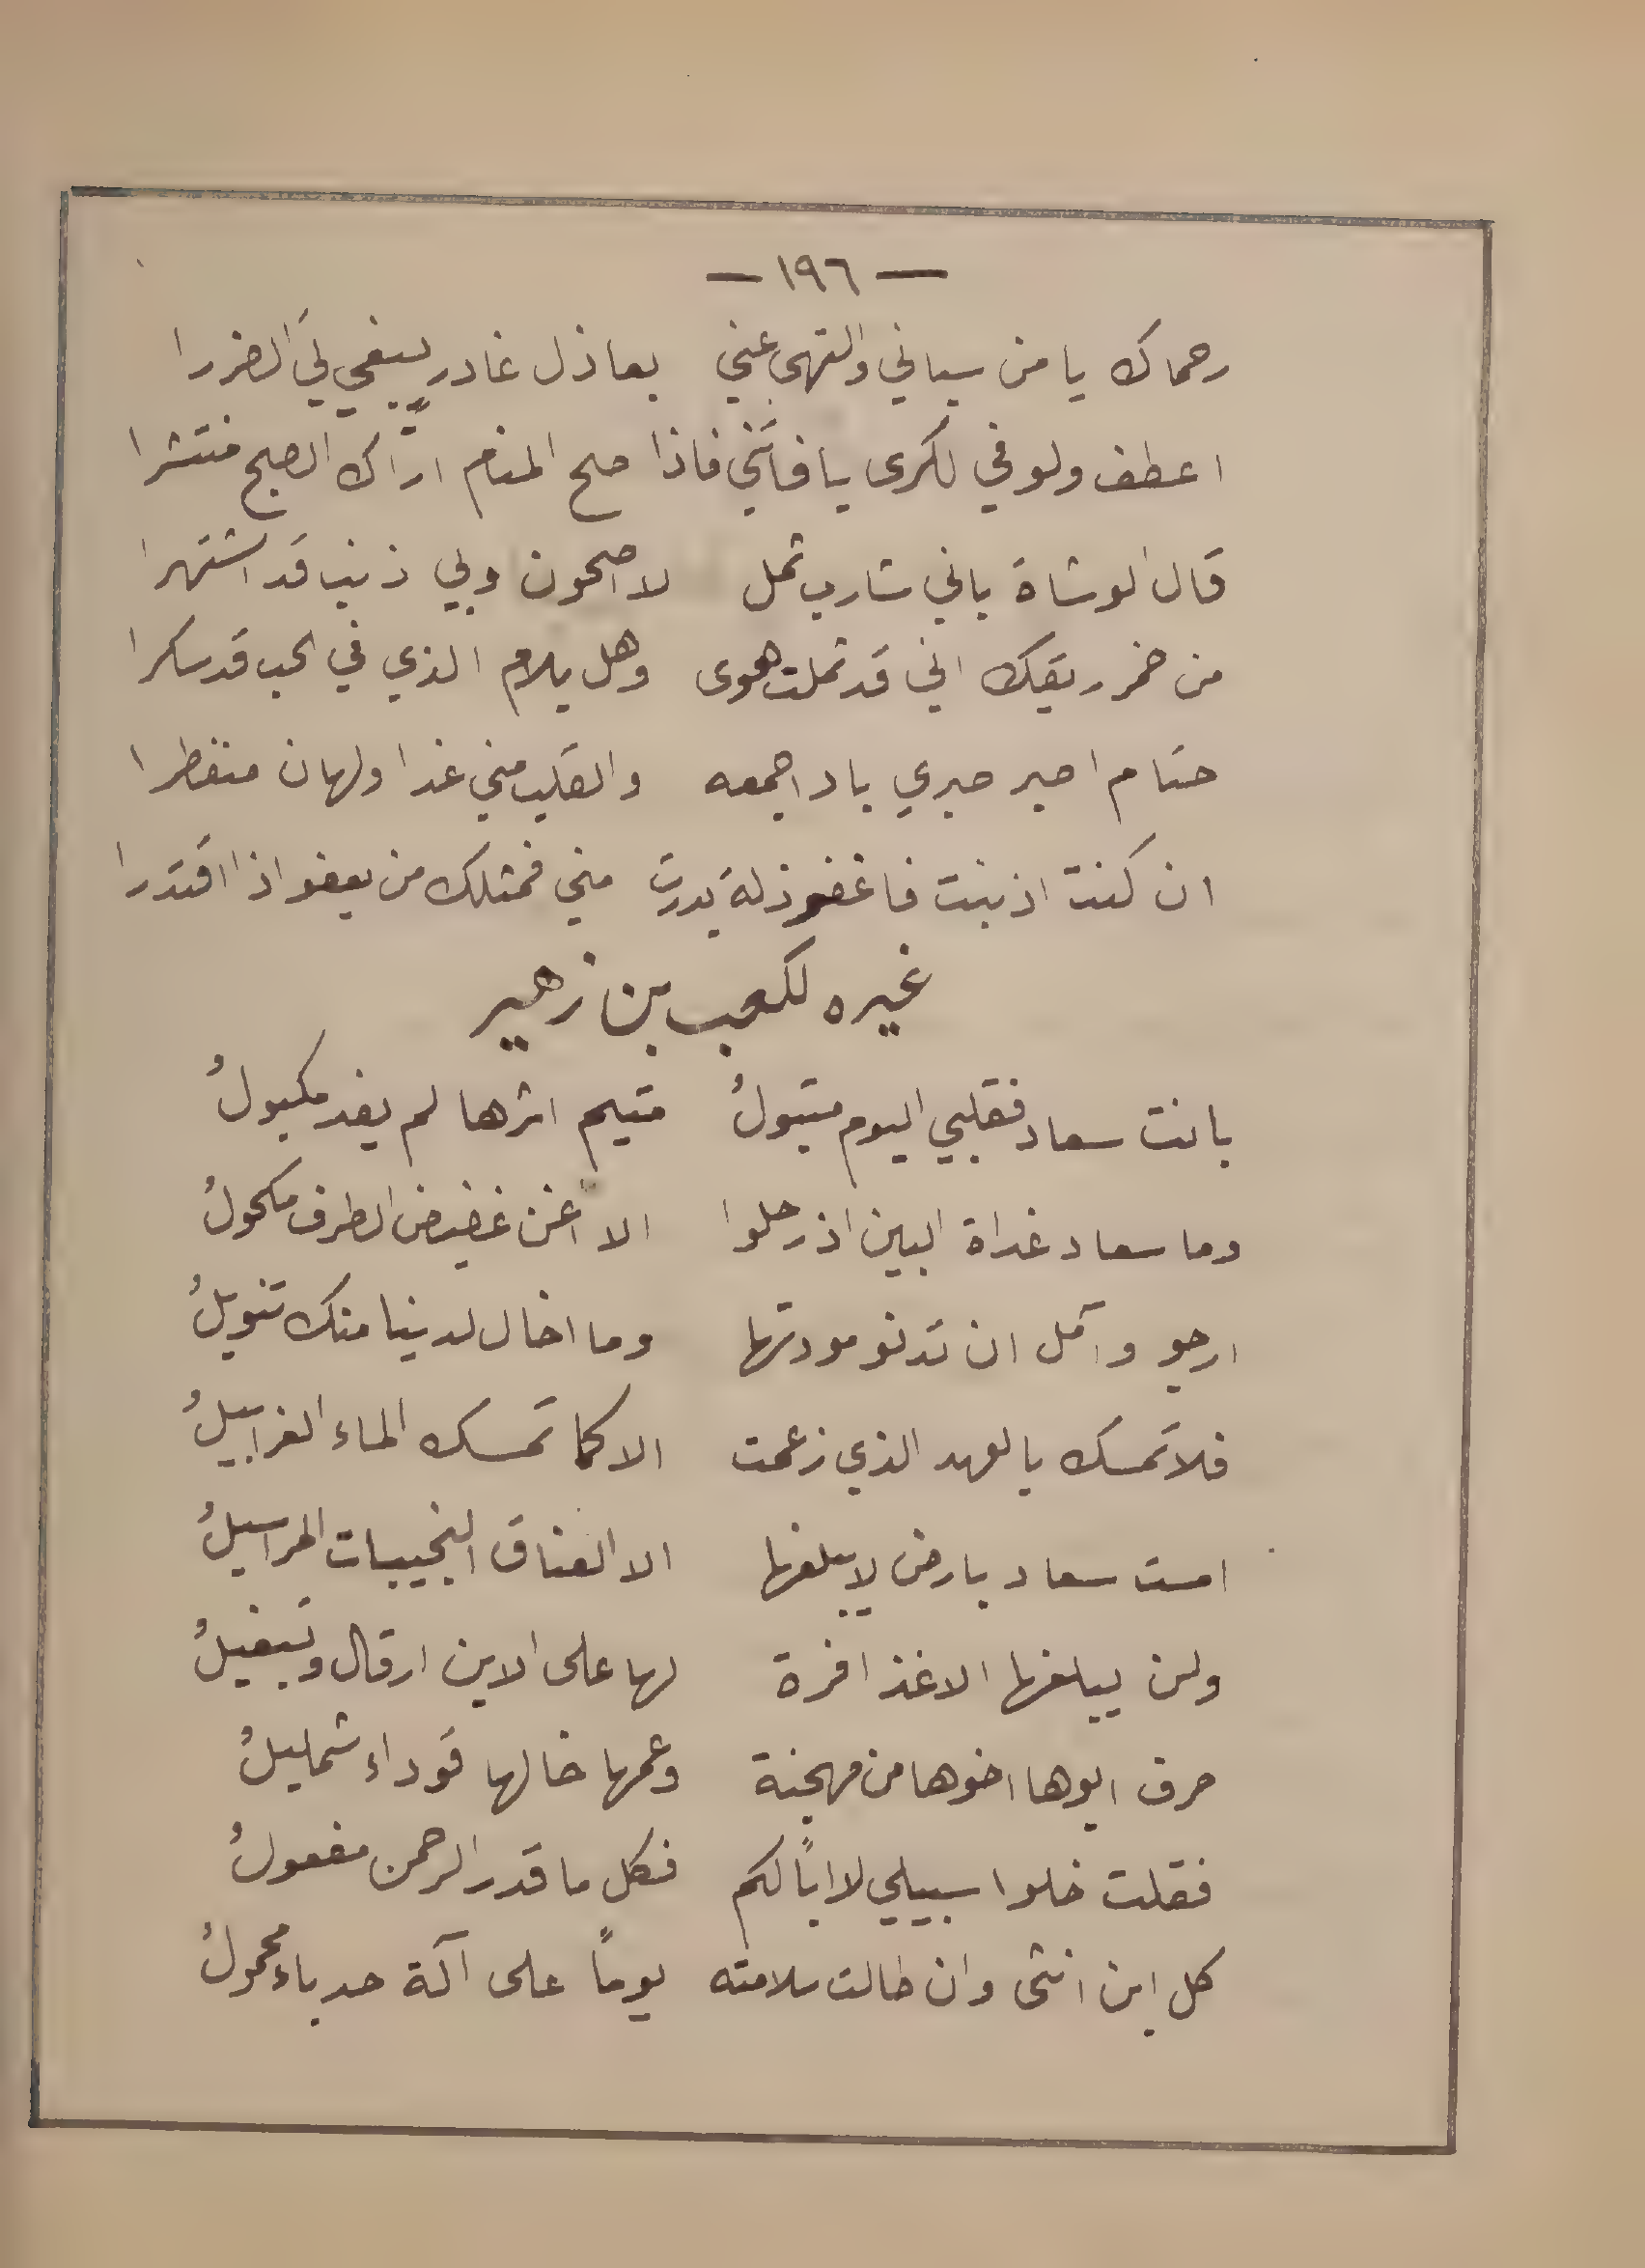 — ١٩٦ —
رحماك يا من سباني والتهى عني بعاذل غادر يبغي لي الضررا
اعطف ولو في لكرى يا فاتني فاذا صح المنام اراك الصبح منتشرا
قال الوشاة باني شارب ثمل لا اصحون وبي ذنب قد اشتهرا
من خمر ريقك اني قد ثملت هوى وهل يلام الذي في الحب قد سكرا
حتام اصبر صبري باد اجمعه والقلب مني غدا ولهان منفطرا
ان كنت اذنبت فاغفر زلة بدرت مني فمثلك من يعفو اذا اقتدرا
غيره لكعب بن زهير
بانت سعاد فقلبي اليوم متبولُ متيم اثرها لم يفد مكبولُ
وما سعاد غداة البين اذ رحلوا الا اغن غضيض الطرف مكحولُ
ارجو وآمل ان تدنو مودتها وما اخال لدينا منك تنويلُ
فلا تمسك بالعهد الذي زعمت الا كما تمسك الماء الغرابيلُ
امست سعاد بارض لا يبلغها الا العناق النجيبات المراسيلُ
ولن يبلغها الا غذافرة لها على الاين ارقال وتبغيلُ
حرف ابوها اخوها من مهجنة وعمها خالها قوداء شمليلُ
فقلت خلوا سبيلي لا اباً لكم فكل ما قدر الرحمن مفعولُ
كل ابن انثى وان طالت سلامته يوماً على آلة حدباء محمولُ